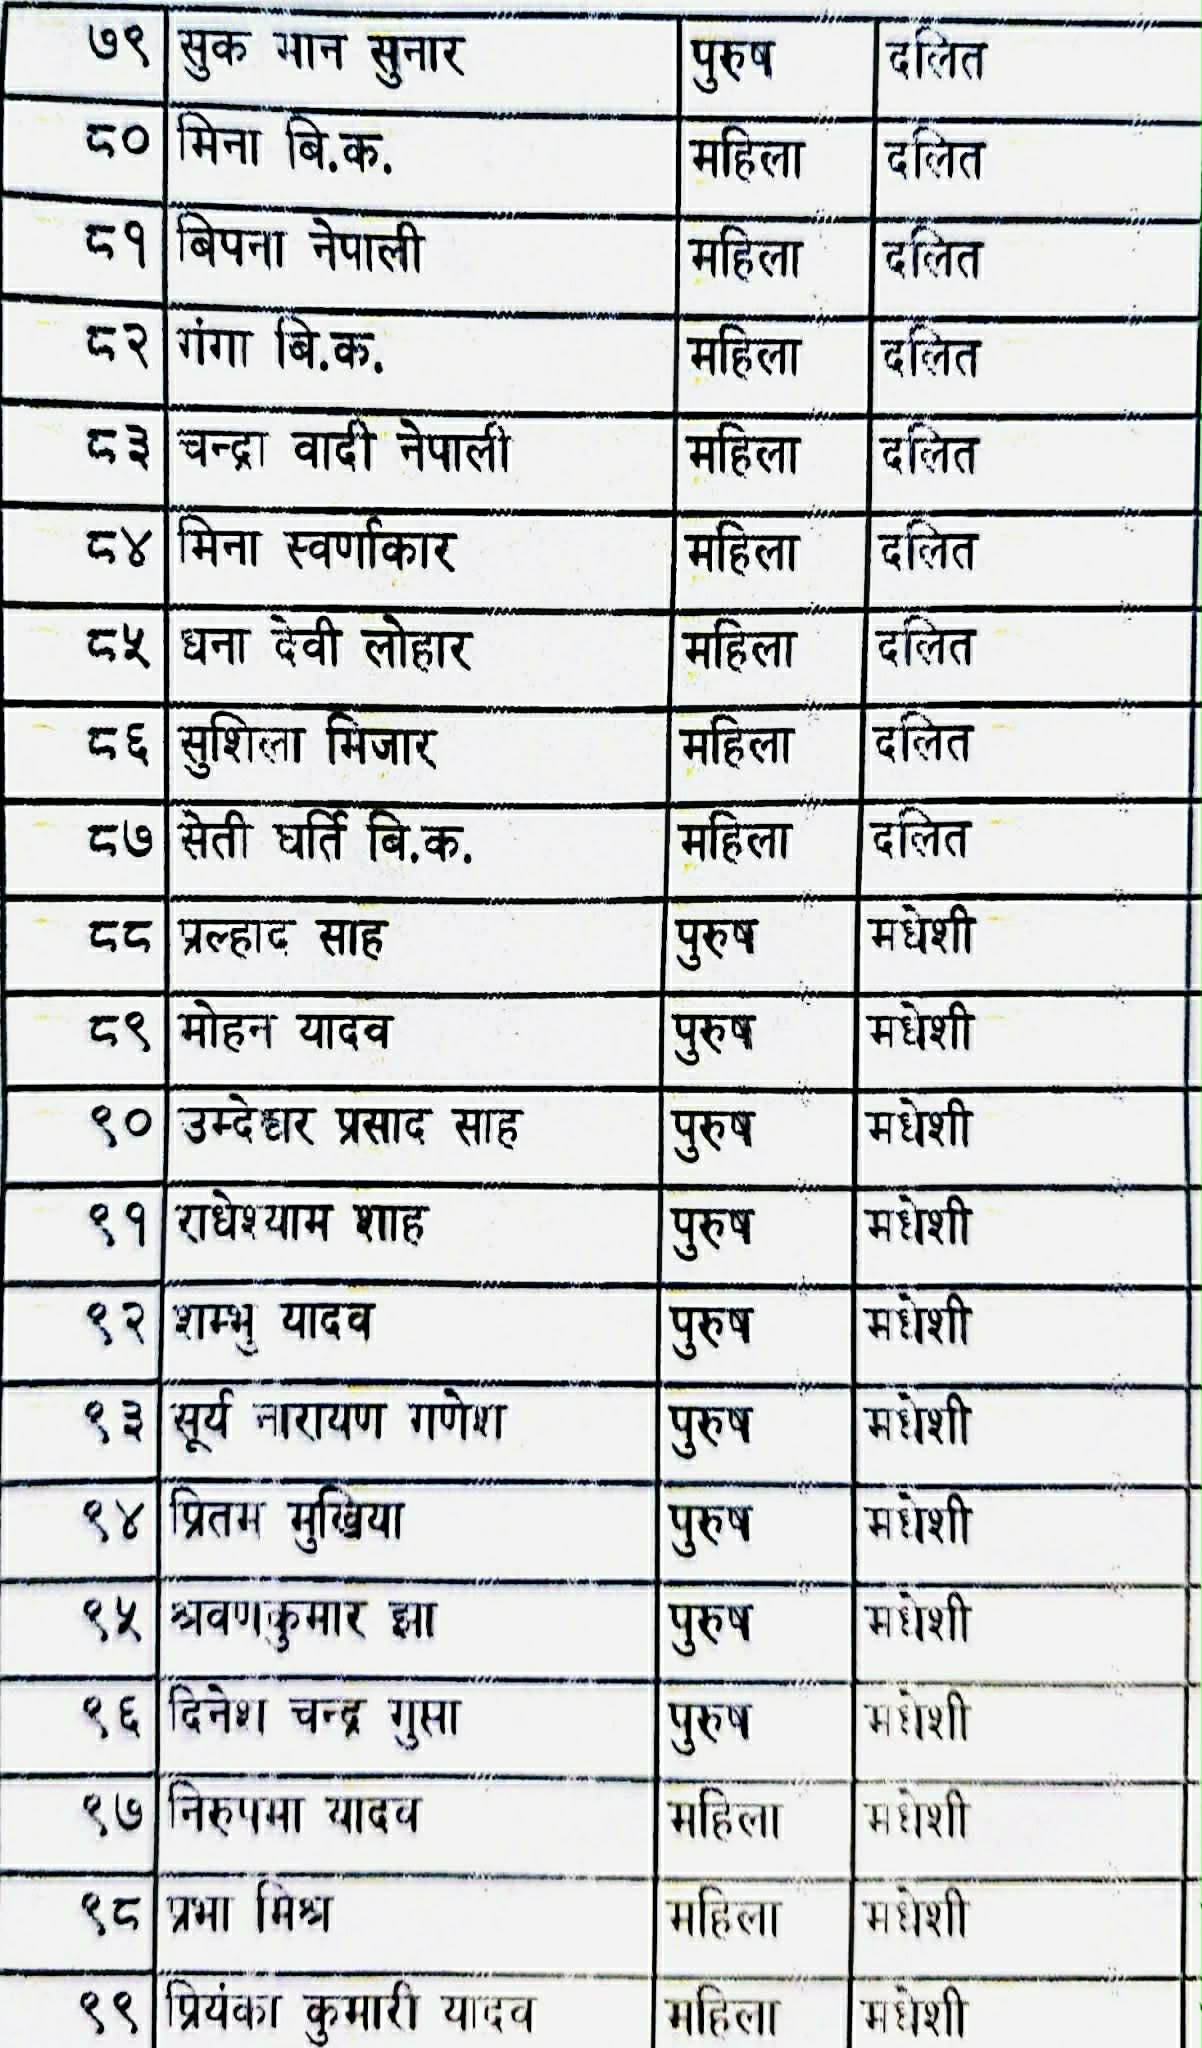 ७९ सुक मान सुनार पुरुष दलित
८० मिना बि.क. महिला दलित
८१ बिपना नेपाली महिला दलित
८२ गंगा बि.क. महिला दलित
८३ चन्द्रा वादी नेपाली महिला दलित
८४ मिना स्वर्णाकार महिला दलित
८५ धना देवी लोहार महिला दलित
८६ सुशिला मिजार महिला दलित
८७ सेती घर्ति बि.क. महिला दलित
८८ प्रल्हाद साह पुरुष मधेशी
८९ मोहन यादव पुरुष मधेशी
९० प्रसाद साह पुरुष मधेशी
९१ राधेश्याम शाह पुरुष मधेशी
९२ शम्भु यादव पुरुष मधेशी
९३ सूर्य नारायण गणेश पुरुष मधेशी
९४ प्रितम मुखिया पुरुष मधेशी
९५ श्रवणकुमार झा पुरुष मधेशी
९६ दिनेश चन्द्र गुप्ता पुरुष मधेशी
९७ निरुपमा यादव महिला मधेशी
९८ प्रभा मिश्र महिला मधेशी
९९ प्रियंका कुमारी यादव महिला मधेशी